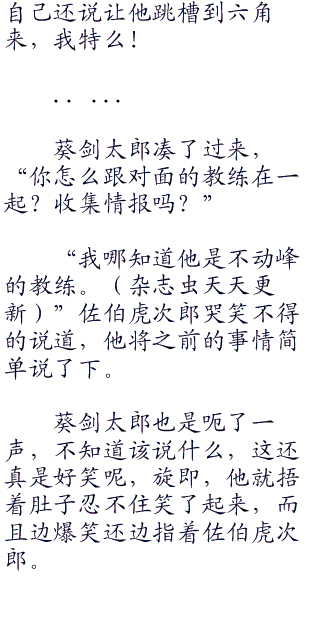 自己还说让他跳槽到六角
来，我特么！
．．．．．
葵剑太郎凑了过来，
“你怎么跟对面的教练在一
起？收集情报吗？”
“我哪知道他是不动峰
的教练。（杂志虫天天更
新）”佐伯虎次郎哭笑不得
的说道，他将之前的事情简
单说了下。
葵剑太郎也是呃了一
声，不知道该说什么，这还
真是好笑呢，旋即，他就捂
着肚子忍不住笑了起来，而
且边爆笑还边指着佐伯虎次
郎。